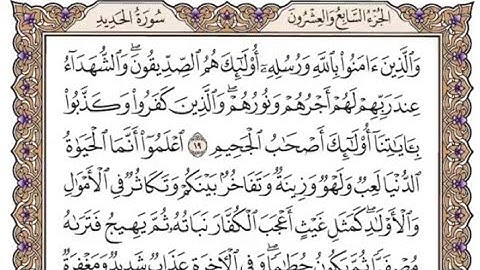 الجُزْءُ السَّابِعُ وَالعِشْرُونَ سُورَةُ الحَدِيدِ
وَٱلَّذِينَ ءَامَنُوا۟ بِٱللَّهِ وَرُسُلِهِۦٓ أُو۟لَٰٓئِكَ هُمُ ٱلصِّدِّيقُونَۖ وَٱلشُّهَدَآءُ
عِندَ رَبِّهِمْ لَهُمْ أَجْرُهُمْ وَنُورُهُمْۖ وَٱلَّذِينَ كَفَرُوا۟ وَكَذَّبُوا۟
بِـَٔايَٰتِنَآ أُو۟لَٰٓئِكَ أَصْحَٰبُ ٱلْجَحِيمِ ١٩ ٱعْلَمُوٓا۟ أَنَّمَا ٱلْحَيَوٰةُ
ٱلدُّنْيَا لَعِبٌ وَلَهْوٌ وَزِينَةٌ وَتَفَاخُرٌۢ بَيْنَكُمْ وَتَكَاثُرٌ فِى ٱلْأَمْوَٰلِ
وَٱلْأَوْلَٰدِۖ كَمَثَلِ غَيْثٍ أَعْجَبَ ٱلْكُفَّارَ نَبَاتُهُۥ ثُمَّ يَهِيجُ فَتَرَىٰهُ
مُصْفَرًّا ثُمَّ يَكُونُ حُطَٰمًاۖ وَفِى ٱلْءَاخِرَةِ عَذَابٌ شَدِيدٌ وَمَغْفِرَةٌ